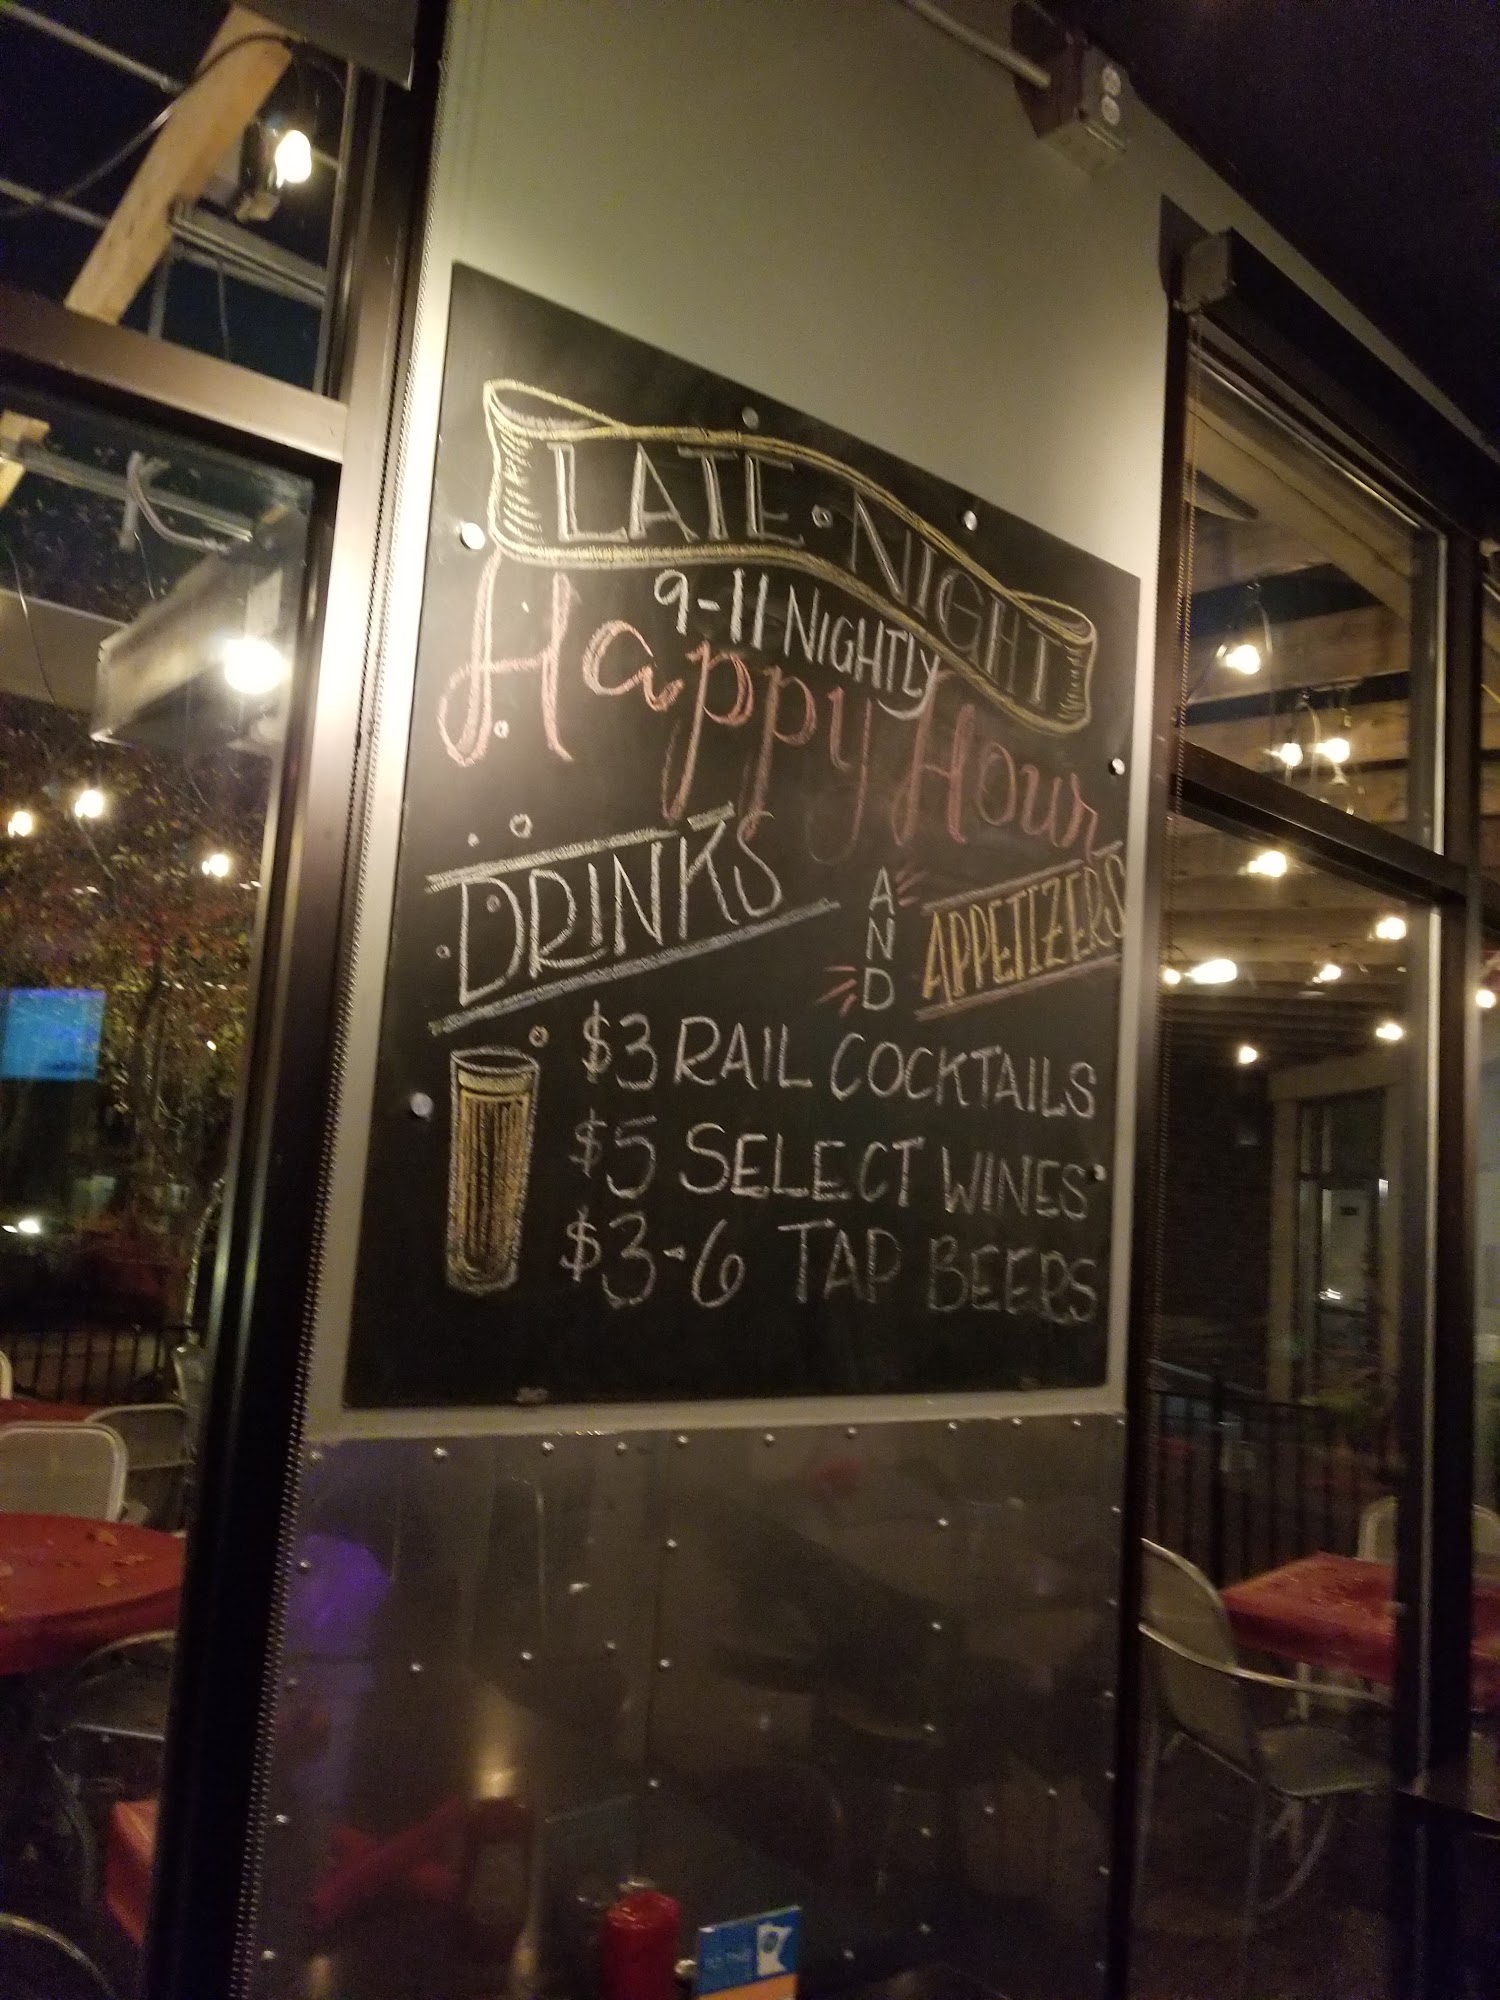 LATE • NIGHT
9-11 NIGHTLY
Happy Hour
DRINKS
AND
APPETIZERS
$3 RAIL COCKTAILS
$5 SELECT WINES
$3-6 TAP BEERS